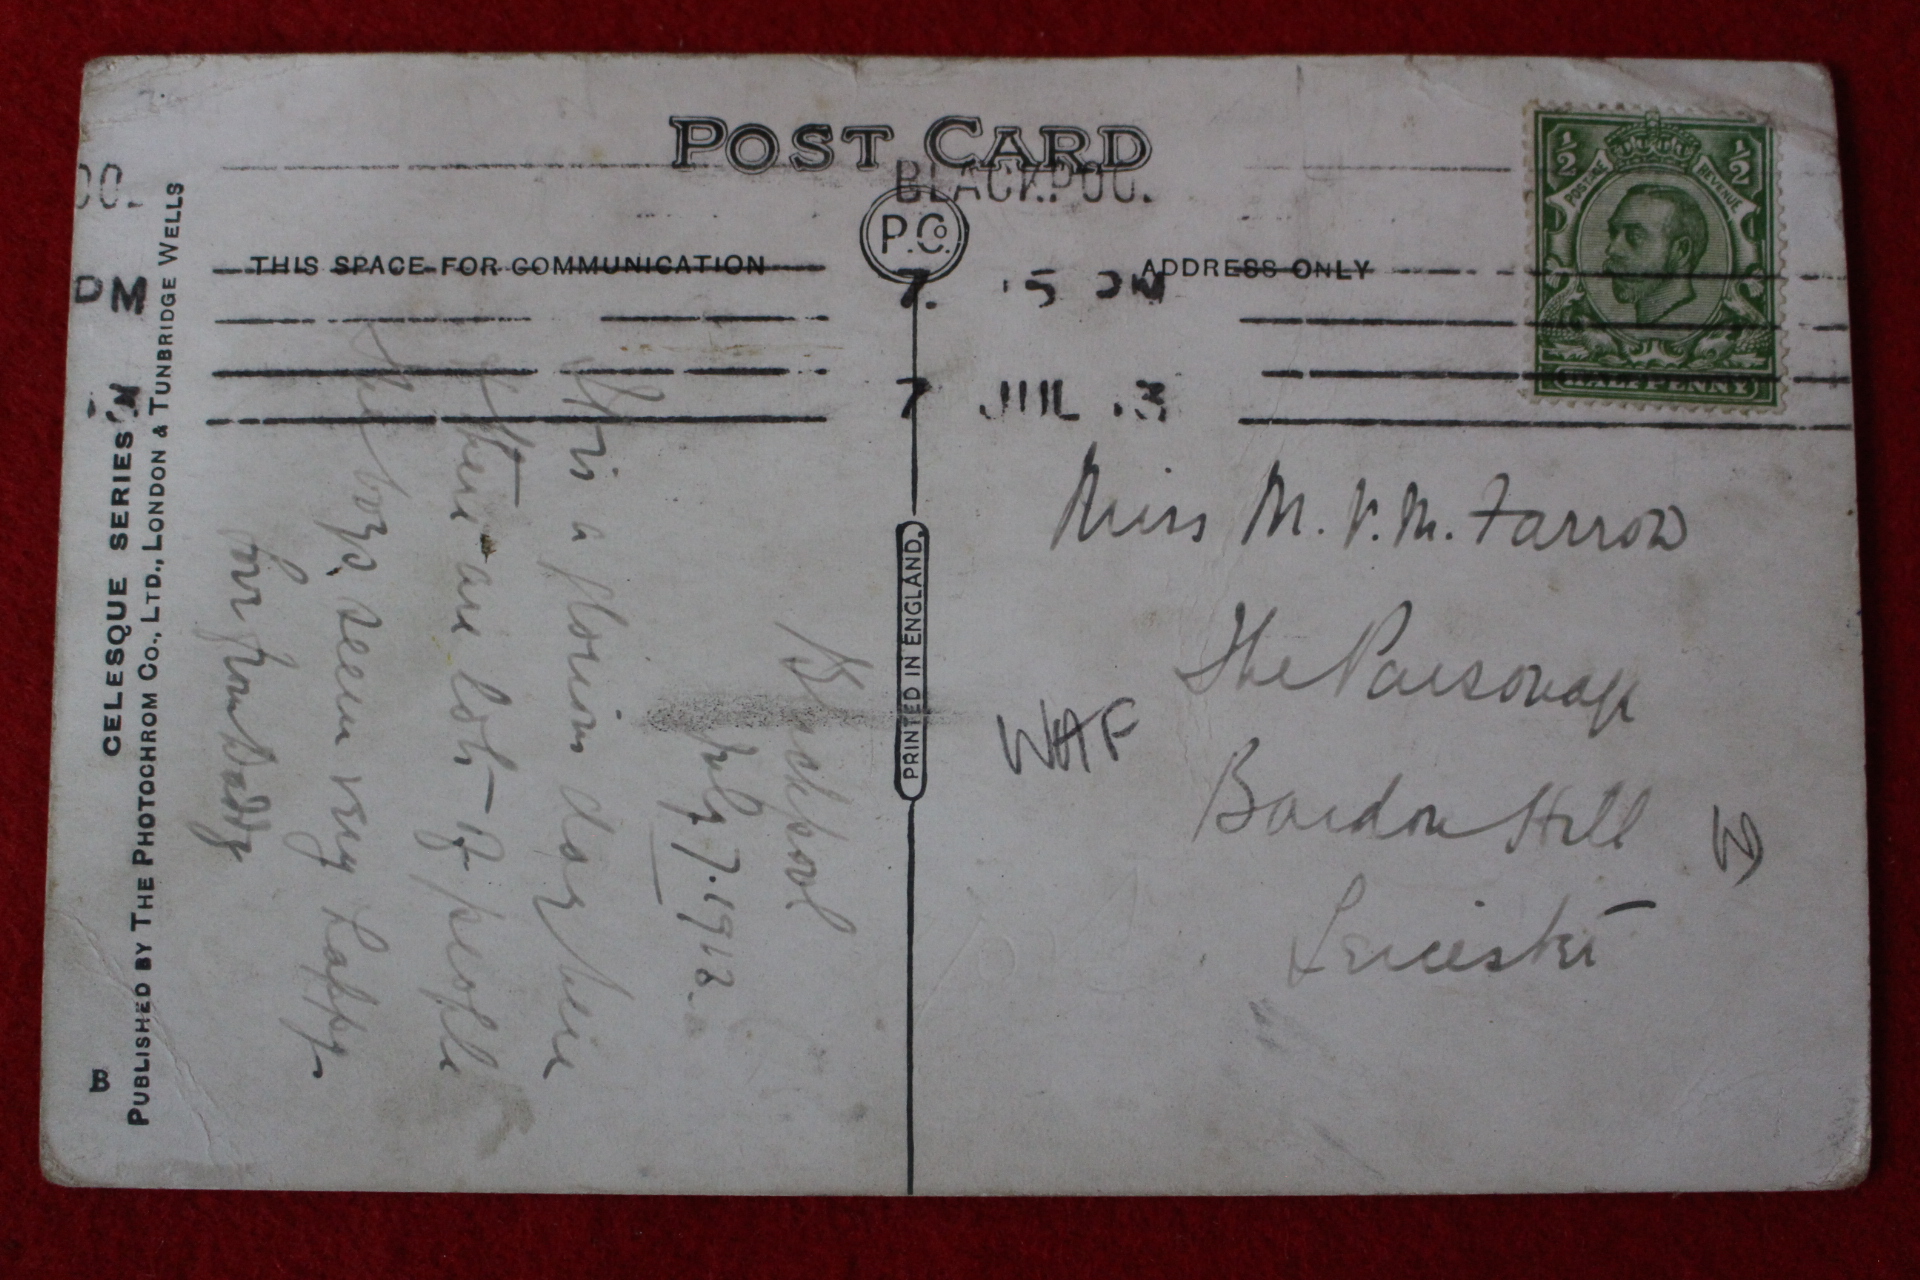 POST CARD
BLACKPOO.
P. Co.
THIS SPACE FOR COMMUNICATION
ADDRESS ONLY
7. 15 PM
7 JUL 13
½ ½
POSTAGE REVENUE
HALFPENNY
Blackpool
July 7. 1913
It is a glorious day here
& there are lots of people
The boys seem very happy.
Love from Daddy
Miss M. V. M. Farrow
The Parsonage
Bardon Hill
Leicester
WAF
PRINTED IN ENGLAND.
CELESQUE SERIES
PUBLISHED BY THE PHOTOCHROM CO., LTD., LONDON & TUNBRIDGE WELLS
B
OO.
PM